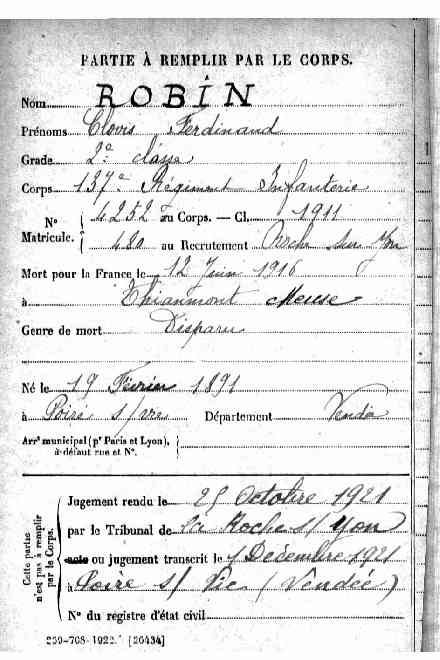 PARTIE À REMPLIR PAR LE CORPS.
Nom ROBIN
Prénoms Clovis Ferdinand
Grade 2e classe
Corps 137e Régiment Infanterie
No Matricule. 4252 au Corps. — Cl. 1911
480 au Recrutement Roche sur Yon
Mort pour la France le 12 Juin 1916
à Thiaumont Meuse
Genre de mort Disparu
Né le 19 Février 1891
à Poiré s/vie Département Vendée
Arrt municipal (pr Paris et Lyon), à défaut rue et No.
Cette partie n'est pas à remplir par le Corps.
Jugement rendu le 25 Octobre 1921
par le Tribunal de La Roche s/ Yon
acte ou jugement transcrit le 1 Décembre 1921
à Poiré s/ Vie (Vendée)
No du registre d'état civil
259-708-1922. [26434]